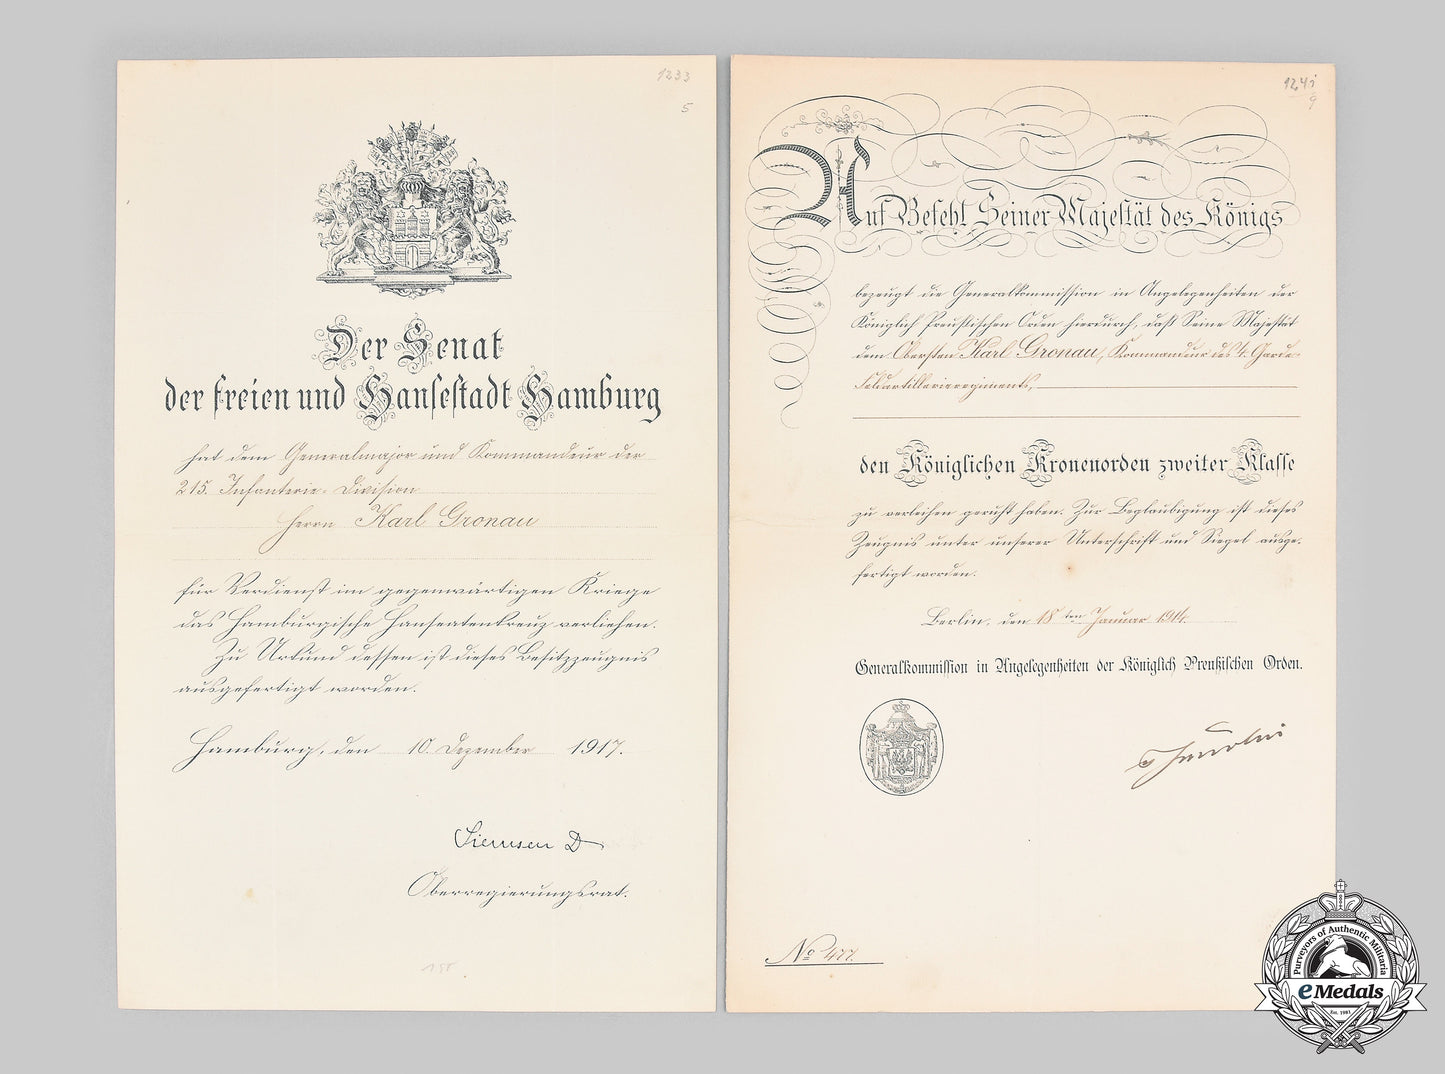 1233
5
Der Senat
der freien und Hansestadt Hamburg
hat dem Generalmajor und Kommandeur der
215. Infanterie-Division
Herrn Karl Gronau
für Verdienst im gegenwärtigen Kriege
das Hamburgische Hanseatenkreuz verliehen.
Zu Urkund dessen ist dieses Besitzzeugnis
ausgefertigt worden.
Hamburg, den 10. Dezember 1917.
Siemsen D
Oberregierungsrat.
Auf Befehl Seiner Majestät des Königs
bezeugt die Generalkommission in Angelegenheiten der
Königlich Preußischen Orden hierdurch, daß Seine Majestät
dem Obersten Karl Gronau, Kommandeur des 4. Garde-
Feldartillerieregiments,
den Königlichen Kronenorden zweiter Klasse
zu verleihen geruht haben. Zur Beglaubigung ist dieses
Zeugnis unter unserer Unterschrift und Siegel ausge-
fertigt worden.
Berlin, den 18ten Januar 1914.
Generalkommission in Angelegenheiten der Königlich Preußischen Orden.
No 477.
Purveyors of Authentic Militaria
eMedals
Est. 1981